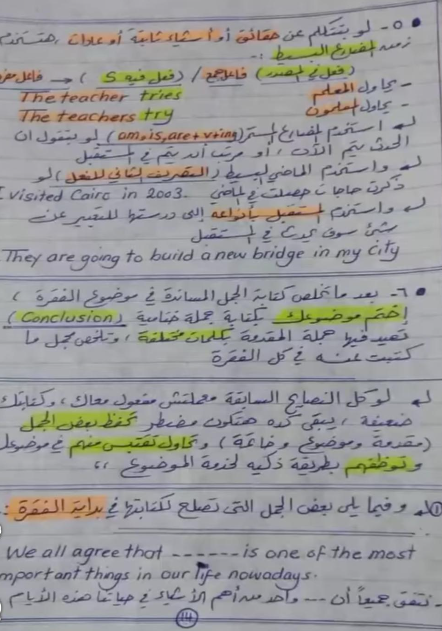 ٥- لو بتتكلم عن حقائق أو أشياء ثابتة أو عادات، هتستخدم
زمن المضارع البسيط :-
(فعل في المصدر) فاعل جمع / (فعل فيه S) ← فاعل مفرد
- يحاول المعلم The teacher tries
- يحاول المعلمون The teachers try
↲ استخدم المضارع المستمر (am,is,are+v+ing) لو بتقول ان
الحدث يتم الآن، أو مرتب أنه يتم في المستقبل
↲ واستخدم الماضي البسيط (التصريف الثاني للفعل) لو
ذكرت حاجات حصلت في الماضي I visited Cairo in 2003.
↲ واستخدم المستقبل بأنواعه إلى درستها للتعبير عن
شئ سوف يحدث في المستقبل
They are going to build a new bridge in my city
٦- بعد ما تخلص كتابة الجمل المساندة في موضوع الفقرة،
إختم موضوعك بكتابة جملة ختامية (Conclusion)
تعيد فيها جملة المقدمة بكلمات مختلفة، وتلخص مجمل ما
كتبت عنه في كل الفقرة
↲ لو كل النصايح السابقة معملتش مفعول معاك، وكتابتك
ضعيفة، يبقى كده هتكون مضطر تحفظ بعض الجمل
(مقدمة وموضوع وخاتمة) وتحاول تقتبس منهم في موضوعك
وتوظفهم بطريقة ذكيه لخدمة الموضوع ،،
① وفيما يلى بعض الجمل التى تصلح لكتابتها في بداية الفقرة :
We all agree that ------ is one of the most
mportant things in our life nowadays.
- نتفق جميعاً أن --- واحد من أهم الأشياء في حياتنا هذه الأيام
14